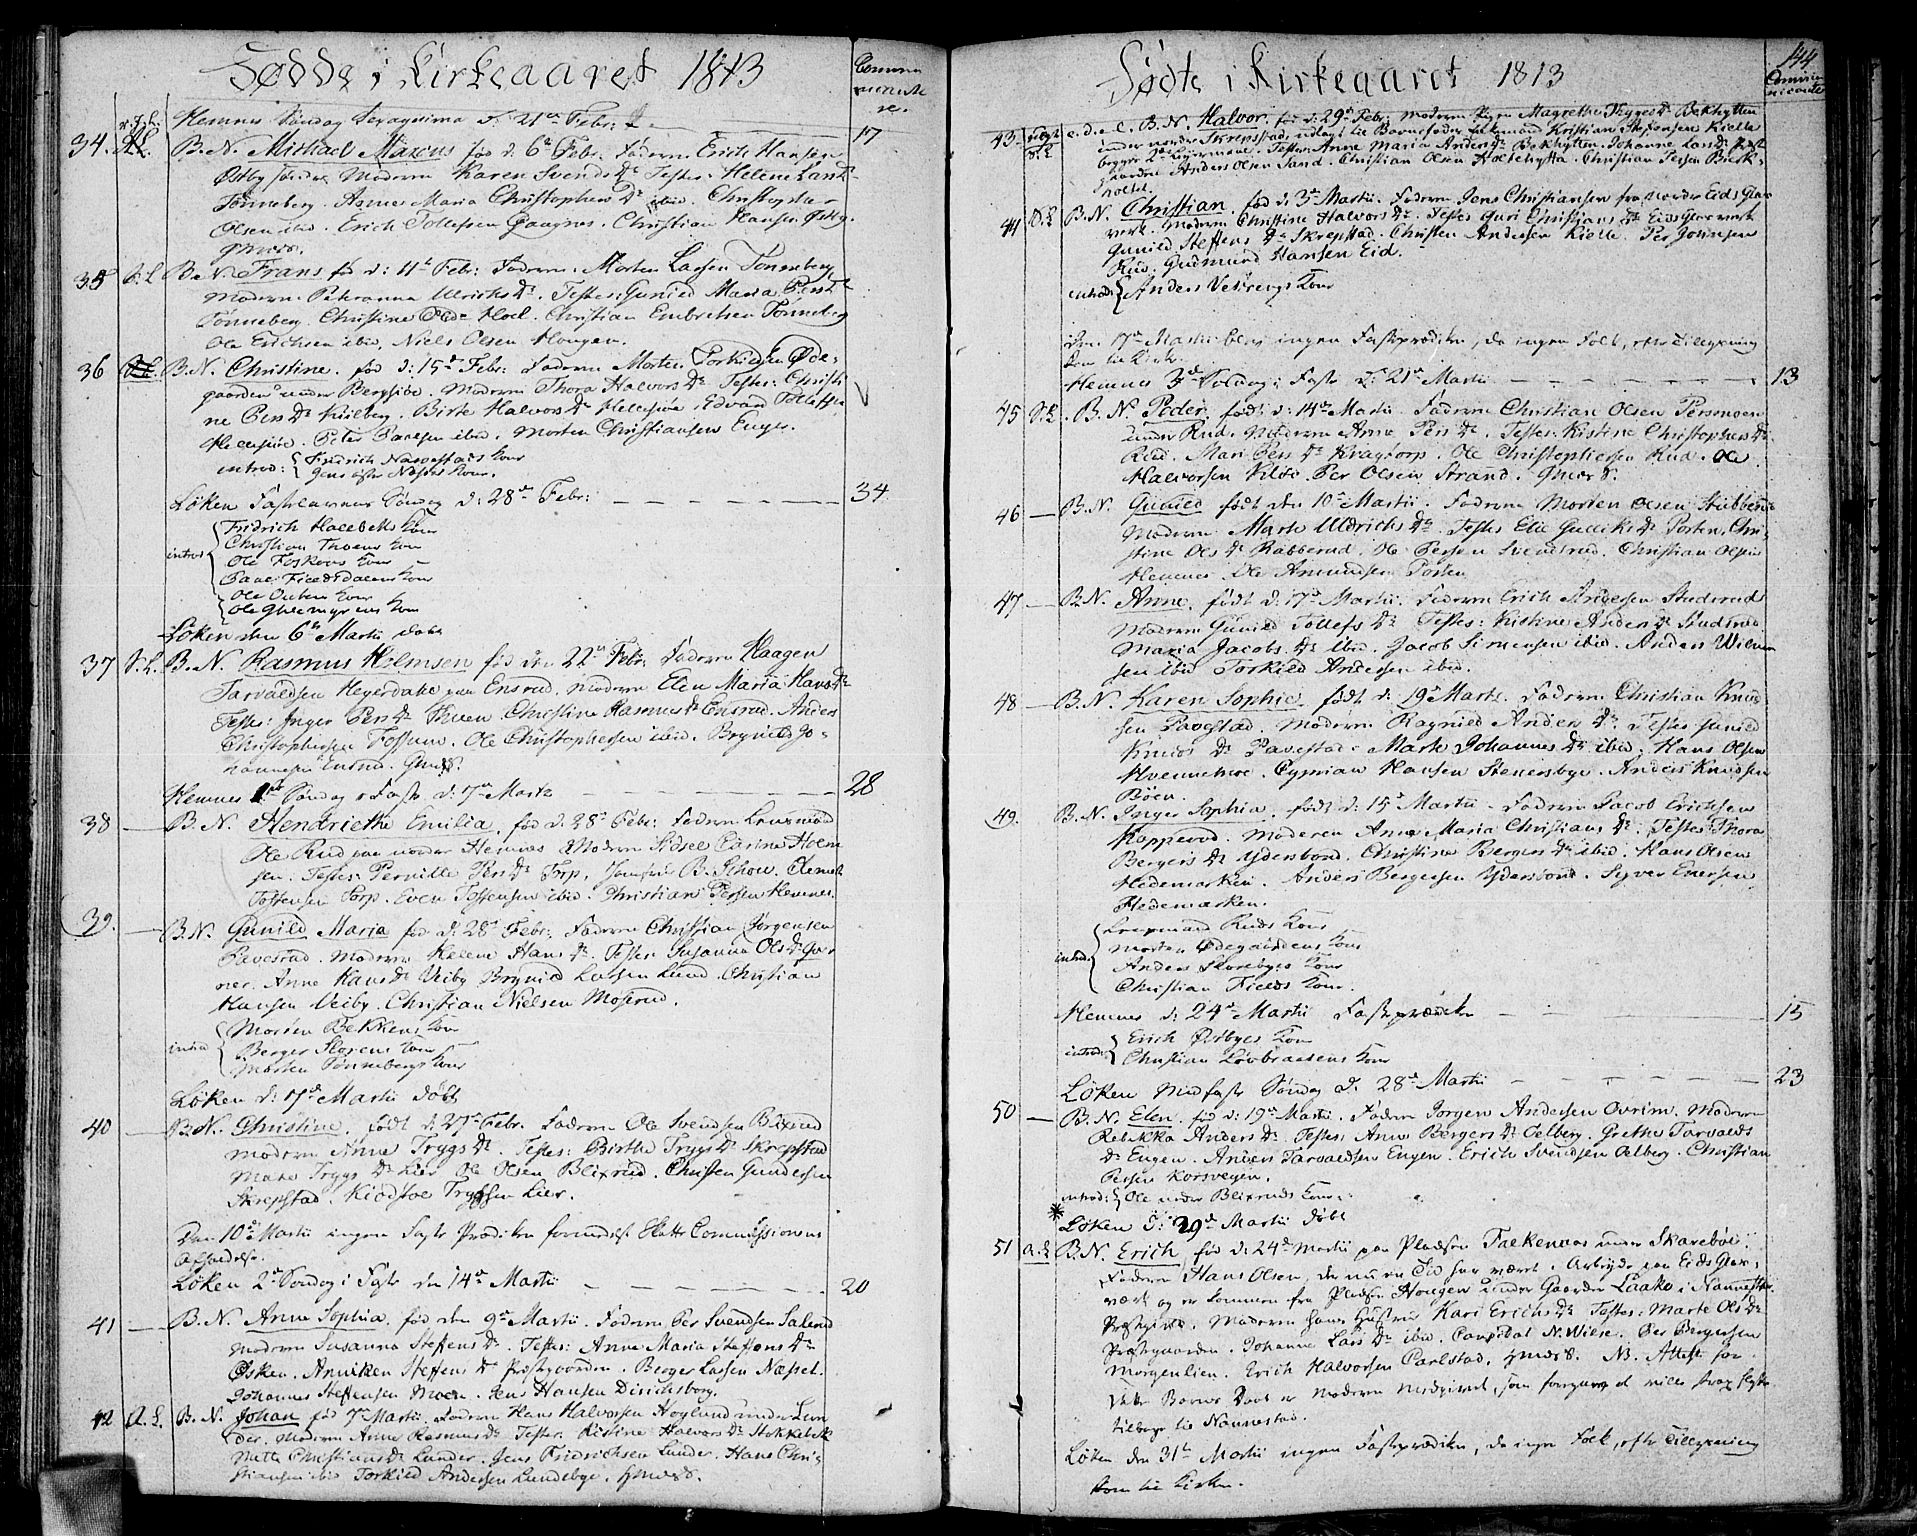 Fødde i Kirkeaaret 1813
Communicantere.
Hemnes Søndag Sexagesima d: 21de Febr:
17
34. B. N. Michael Marcus født d. 6te Febr. Faderen Erich Hansen
Østby Moderen Karen Svends Dr Testes: Helene Lars Dr
Tønneberg. Anne Maria Christophers Dr ibid. Christopher
Olsen ibid. Erich Tollefsen Haagnes. Christian Hansen Østby.
35 B. N. Frans født d: 11te Febr: Faderen Morten Larsen Tønneberg
Moderen Petronna Ulrichs Dr. Testes: Gunild Maria Pers Dr
Tønneberg. Christine Hoel. Christian Embretsen Tønneberg
Ole Erichsen ibid. Niels Olsen Hougen.
36 B. N. Christine. født d: 15de Febr: Faderen Morten Torkildsen Øde-
gaarden under Bergsiøe. Moderen Thora Halvors Dr Testes: Christi
ne Pers Dr Kielberg. Birte Halvors Dr Hellesiøe. Edvard Tollefsen
Hellesiøe. Peter Paulsen ibid. Morten Christiansen Enger.
introd: { Fridrich Navestads Kone
Jens Næsets Kone.
Løken Fastelavns Søndag d: 28de Febr:
34
introd { Fridrich Hallebeks Kone
Christian Thoens Kone
Ole Foskens Kone
Paul Fieldsdalens Kone
Ole Kone
Ole Kone
Løken den 6te Martii døbt
37 B. N. Rasmus Holmsen født den 22de Febr: Faderen Haagen
Tarvaldsen Heyerdahl paa Ensrud. Moderen Elen Maria Hans Dr
Testes: Inger Pers Dr Thuen. Christine Rasmus Dr Ensrud. Anders
Christophersen Fossum. Ole Christophersen ibid. Brynild Jo-
hannesen Ensrud.
Hemnes 1ste Søndag i Faste d. 7de Martii
28
38 B. N. Hendriethe Emilia, født d: 28de Febr: Faderen Lensmand
Ole Rud paa nordre Hemnes Moderen Sidsel Carine Holm
sen. Testes: Pernille Pers Dr Torp, Jomfrue B. Schow. Clemet
Tostensen Torp. Even Tostensen ibid. Christian Persen Hemnes.
39. B. N. Gunild Maria født d. 28de Febr: Faderen Christian Jørgensen
Pavestad. Moderen Helene Hans Dr. Testes: Susanna Ols Dr
Anne Hans Dr Veiby Brynild Larsen Lund. Christian
Hansen Veiby. Christian Nielsen Moserud.
introd { Morten Bekkens Kone
Berger Skorens Kone
Morten Tønnebergs Kone
Løken d: 17de Martii døbt
40 B. N. Christine, født d: 27de Febr. Faderen Ole Svendsen Blixrud
Moderen Anne Trygs Dr. Testes: Birthe Trygs Dr Skrepstad
Mari Trygs Dr Lier Ole Olsen Blixrud. Christen Gundersen
Skrepstad. Kiødstoe Trygsen Lier.
Den 10de Martii ingen Faste Prædiken formedelst Skatte Commissionens
Løken 2de Søndag i Faste den 14de Martii
20
41 B. N. Anne Sophia, født den 9de Martii. Faderen Per Svendsen Salerud
Moderen Susanna Steffens Dr. Testes: Anne Maria Steffens Dr
Osken. Anniken Steffens Dr Præstegaarden. Berger Larsen Næssel.
Johannes Steffensen Moen. Jens Hansen
42 B. N. Johan født 7de Martii. Faderen Hans Halvorsen Hoglund under Lun
der. Moderen Anne Rasmus Dr. Testes: Kistine Halvors Dr Stokkebek
Mette Christians Dr Lunder. Jens Fridrichsen Lunder. Hans Chri-
stiansen ibid Torkild Andersen Lundebye.
Fødte i Kirkeaaret 1813
144
Communicanter
43. B. N. Halvor. født d: 29de Febr: Moderen Pigen Magrethe Thyges Dr Bekhytten
under nordre Skrepstad, udlagt til Barnefader Enkemand Kristian Steffensen Kielle
begges Leiermaal. Testes: Anne Maria Anders Dr Bekhytten. Johanne Lars Dr Præst-
gaarden Anders Olsen Sand. Christian Olsen Holtehytta. Christian Persen Birk-
holtet.
44 B. N. Christian, født d. 3de Martii. Faderen Jens Christiansen fra nordre Eids Glas-
værk. Moderen Christine Halvors Dr. Testes Guri Christians Dr Eids Glasværk
Gunild Steffens Dr Skrepstad. Christen Andersen Kielle. Per Johnsen
Rud. Gudmund Hansen Eid.
introd { Anders Vestbergs Kone
Den 17de Martii blev ingen Fasteprædiken, da ingen Folk, efter Tillysning
kom til Kirke.
Hemnes 3de Søndag i Faste d. 21de Martii
13
45 B. N. Peder, født d: 14de Martii. Faderen Christian Olsen Personeen
under Rud. Moderen Anne Pers Dr. Testes: Kistine Christophers Dr
Rud. Mari Pers Dr Kragtorp. Ole Christophersen Rud. Ole
Halvorsen Kilde. Per Olsen Strand.
46 B. N. Gunild født den 10de Martii. Faderen Morten Olsen Stubberud
Moderen Marte Uldrichs Dr. Testes Elie Gulliks Dr Porten, Chri-
stine Ols Dr Rabberud. Ole Persen Svendsrud. Christian Olsen
Hemnes Ole Amundsen Porten.
47 B. N. Anne, født d: 17de Martii. Faderen Erich Andersen Studerud
Moderen Gunild Tollefs Dr Testes: Kistine Anders Dr Studerud
Maria Jacobs Dr ibid. Jacob Simensen ibid. Anders Wilum
sen ibid Torkild Andersen ibid.
48 B. N. Karen Sophie, født d: 19de Martii. Faderen Christian Knud-
sen Pavestad. Moderen Ragnild Anders Dr. Testes: Gunild
Knuds Dr Pavestad. Marte Johannes Dr ibid. Hans Olsen
Gymian Hansen Stenersbye. Anders Knudsen
Böen.
49. B. N. Inger Sophia, født d: 15de Martii. Faderen Jacob Erichsen
Kopperud. Moderen Anne Maria Christians Dr. Testes: Thora
Bergers Dr Ydersbond. Christine Bergers Dr ibid. Hans Olsen
Hedemarken. Anders Bergersen Ydersbond. Syver Enersen
Hedemarken.
introd { Lensmand Ruds Kone
Morten Ødegaardens Kone
Anders Skarebyes Kone
Christian Fields Kone.
Hemnes d: 24de Martii Fasteprædiken
15
introd { Erich Østbyes Kone
Christian Løvbraatens Kone
Løken Midfaste Søndag d. 28de Martii
23
50 B. N. Elen, født d: 19de Martii. Faderen Jørgen Andersen Ovrim. Moderen
Rebekka Anders Dr. Testes: Anne Bergers Dr Oelberg. Grethe Tarvalds
Dr Eugen. Anders Tarvaldsen Eugen. Erich Svendsen Oelberg. Christian
Persen Korsvegen.
introd: { Ole nedre Blixruds Kone.
* Løken d: 29de Martii døbt
51 B. N. Erich født d: 24de Martii paa Pladsen Falkenaas under Skarebøl.
Faderen Hans Olsen, der nu en Tid har været i Arbejde paa Eids Glas-
værk og er kommen fra Pladsen Hougen under Gaarden Laake i Nannestad
Præstegield. Moderen hans Hustrue Kari Erichs Dr Testes: Marte Ols Dr
Præstgaarden. Johanne Lars Dr ibid. Candidat N. Wiese. Per Bergersen
Morgenlien. Erich Halvorsen Carlstad. NB. Attest for
dette Barns Daab er Moderen medgivet, som foregav at ville strax flytte
tilbage til Nannestad.
Løken den 31te Martii ingen Fasteprædiken, da ingen Folk, efter Tillysning
kom til Kirken.